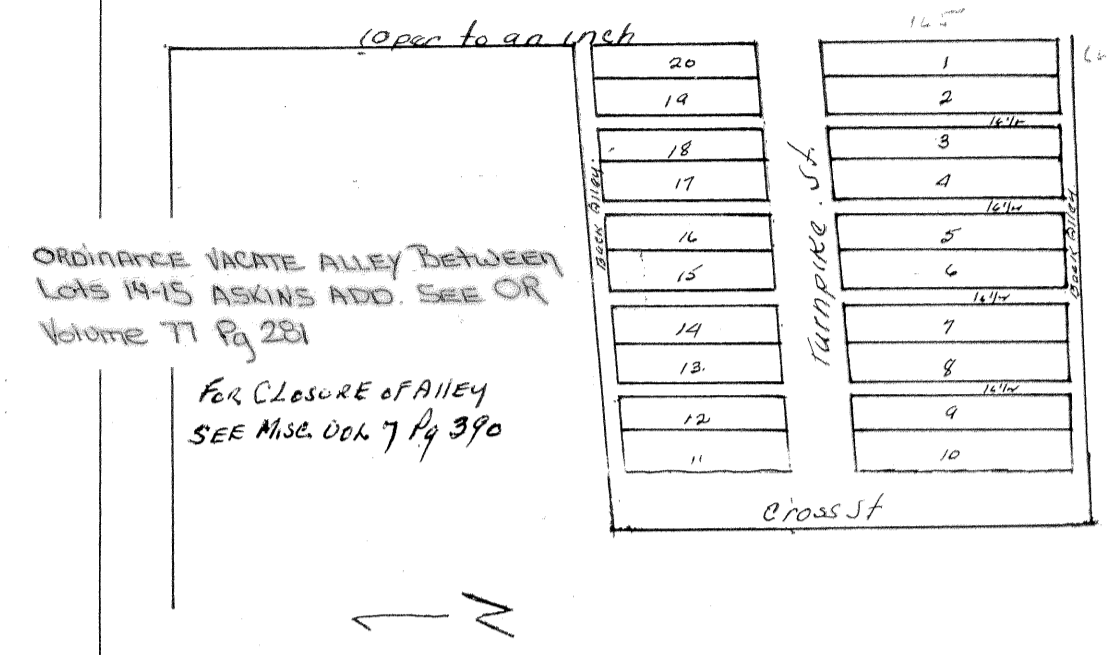 10 per to an inch
165
20
19
18
17
16
15
14
13.
12
11
Back Alley.
Turnpike. St.
1
2
16 1/2
3
4
16 1/2
5
6
16 1/2
7
8
16 1/2
9
10
Back Alley
Cross St
ORDINANCE VACATE ALLEY BETWEEN
LOTS 14-15 ASKINS ADD. SEE OR
VOLUME 77 Pg 281
FOR CLOSURE OF ALLEY
SEE MISC. VOL 7 Pg 390
N